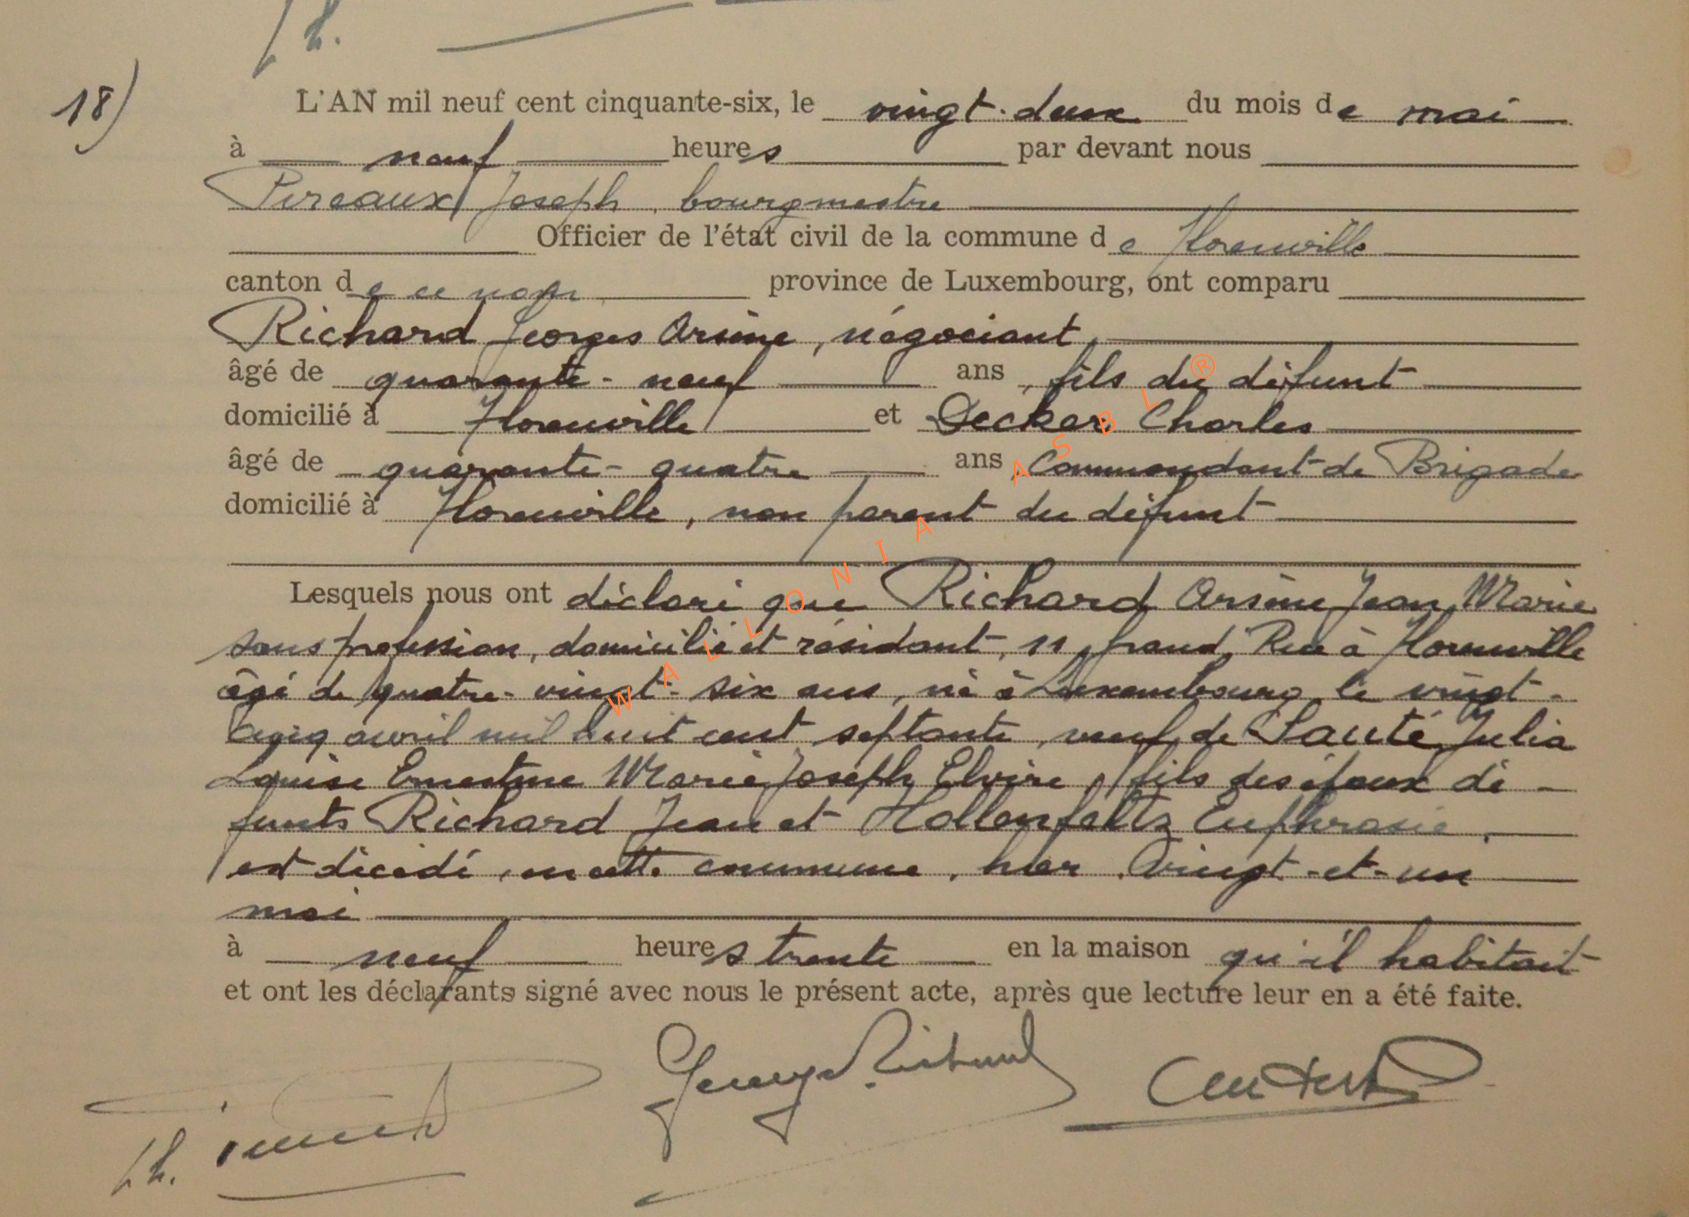 18)
L'AN mil neuf cent cinquante-six, le vingt-deux du mois de mai
à neuf heures par devant nous
Pireaux Joseph, bourgmestre
Officier de l'état civil de la commune de Florenville
canton de ce nom province de Luxembourg, ont comparu
Richard Georges Arsène, négociant,
âgé de quarante-neuf ans, fils du défunt
domicilié à Florenville et Decker Charles
âgé de quarante-quatre ans, Commandant de Brigade
domicilié à Florenville, non parent du défunt
Lesquels nous ont déclaré que Richard Arsène Jean Marie
sans profession, domicilié et résidant, 11, Grand'Rue à Florenville
âgé de quatre-vingt-six ans, né à Luxembourg le vingt-
cinq avril mil huit cent septante, veuf de Sauté Julia
Louise Ernestine Marie Joseph Elvire, fils des époux dé-
funts Richard Jean et Hollenfeltz Euphrasie,
est décédé, en cette commune, hier vingt-et-un
mai
à neuf heures trente en la maison qu'il habitait
et ont les déclarants signé avec nous le présent acte, après que lecture leur en a été faite.
Georges Richard
WALLONIA ASBL ®